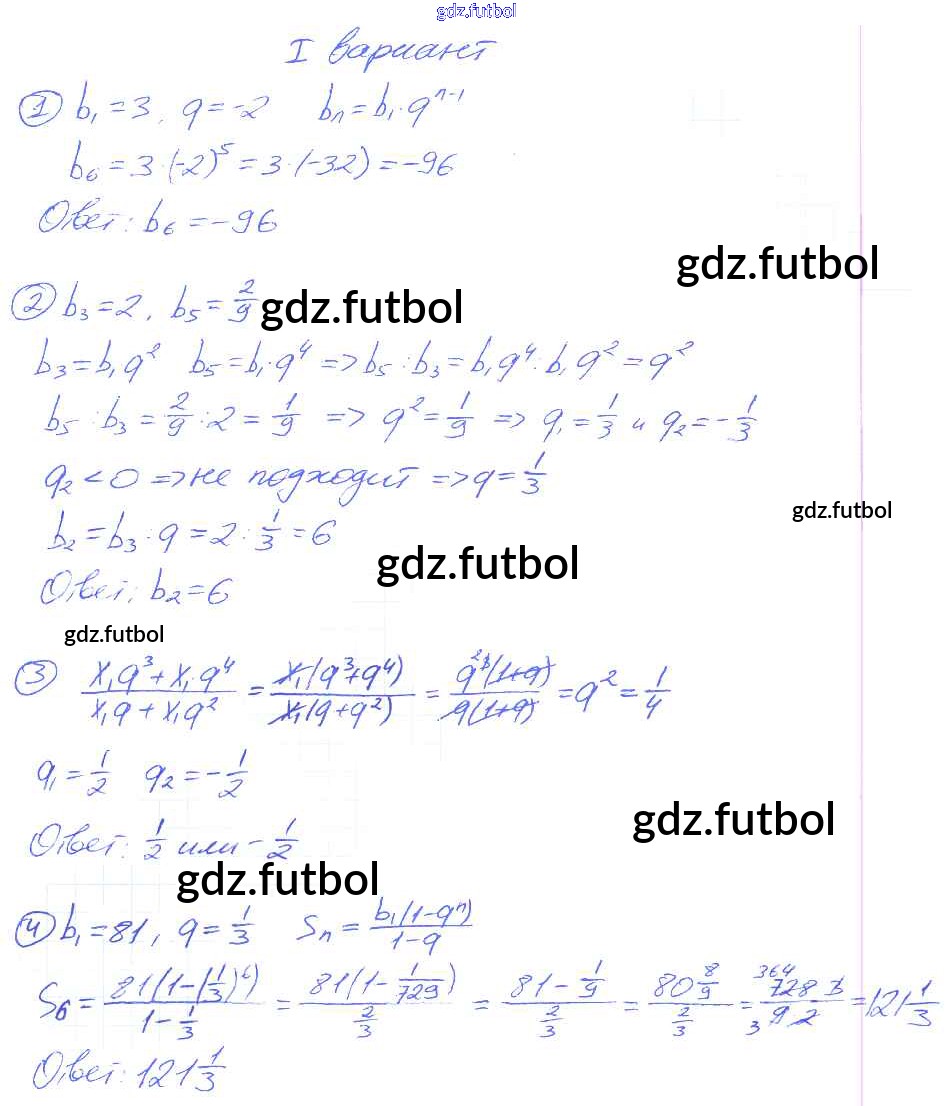 gdz.futbol
I вариант
① b₁ = 3, q = -2 bₙ = b₁·qⁿ⁻¹
b₆ = 3·(-2)⁵ = 3·(-32) = -96
Ответ: b₆ = -96
gdz.futbol
② b₃ = 2, b₅ = 2/9 gdz.futbol
b₃ = b₁q² b₅ = b₁·q⁴ => b₅ : b₃ = b₁q⁴ : b₁q² = q²
b₅ : b₃ = 2/9 : 2 = 1/9 => q² = 1/9 => q₁ = 1/3 и q₂ = -1/3
q₂ < 0 => не подходит => q = 1/3
gdz.futbol
b₂ = b₃ : q = 2 : 1/3 = 6
gdz.futbol
Ответ: b₂ = 6
gdz.futbol
③ (x₁q³ + x₁·q⁴)/(x₁q + x₁q²) = x₁(q³+q⁴)/x₁(q+q²) = q³(1+q)/q(1+q) = q² = 1/4
q₁ = 1/2 q₂ = -1/2
gdz.futbol
Ответ: 1/2 или -1/2
gdz.futbol
④ b₁ = 81, q = 1/3 Sₙ = b₁(1-qⁿ)/(1-q)
S₆ = 81(1-(1/3)⁶)/(1-1/3) = 81(1-1/729)/(2/3) = (81-1/9)/(2/3) = (80 8/9)/(2/3) = 364 728·3/(3 9·2) = 121 1/3
Ответ: 121 1/3